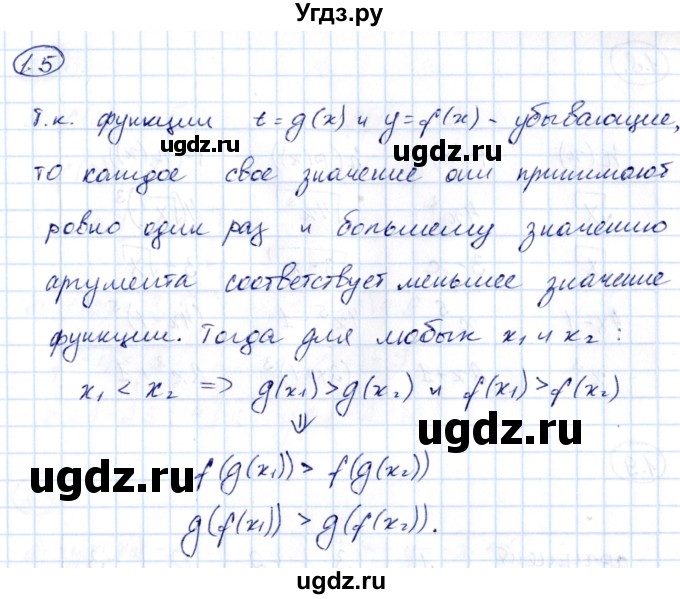 Угдз.ру
1.5
Т.к. функции t = g(x) и y = f(x) - убывающие,
то каждое свое значение они принимают
ровно один раз и большему значению
аргумента соответствует меньшее значение
функции. Тогда для любых x₁ и x₂ :
x₁ < x₂ => g(x₁) > g(x₂) и f(x₁) > f(x₂)
⇓
f(g(x₁)) > f(g(x₂))
g(f(x₁)) > g(f(x₂)).
ugdz.ru
ugdz.ru
ugdz.ru
ugdz.ru
ugdz.ru
ugdz.ru
ugdz.ru
ugdz.ru